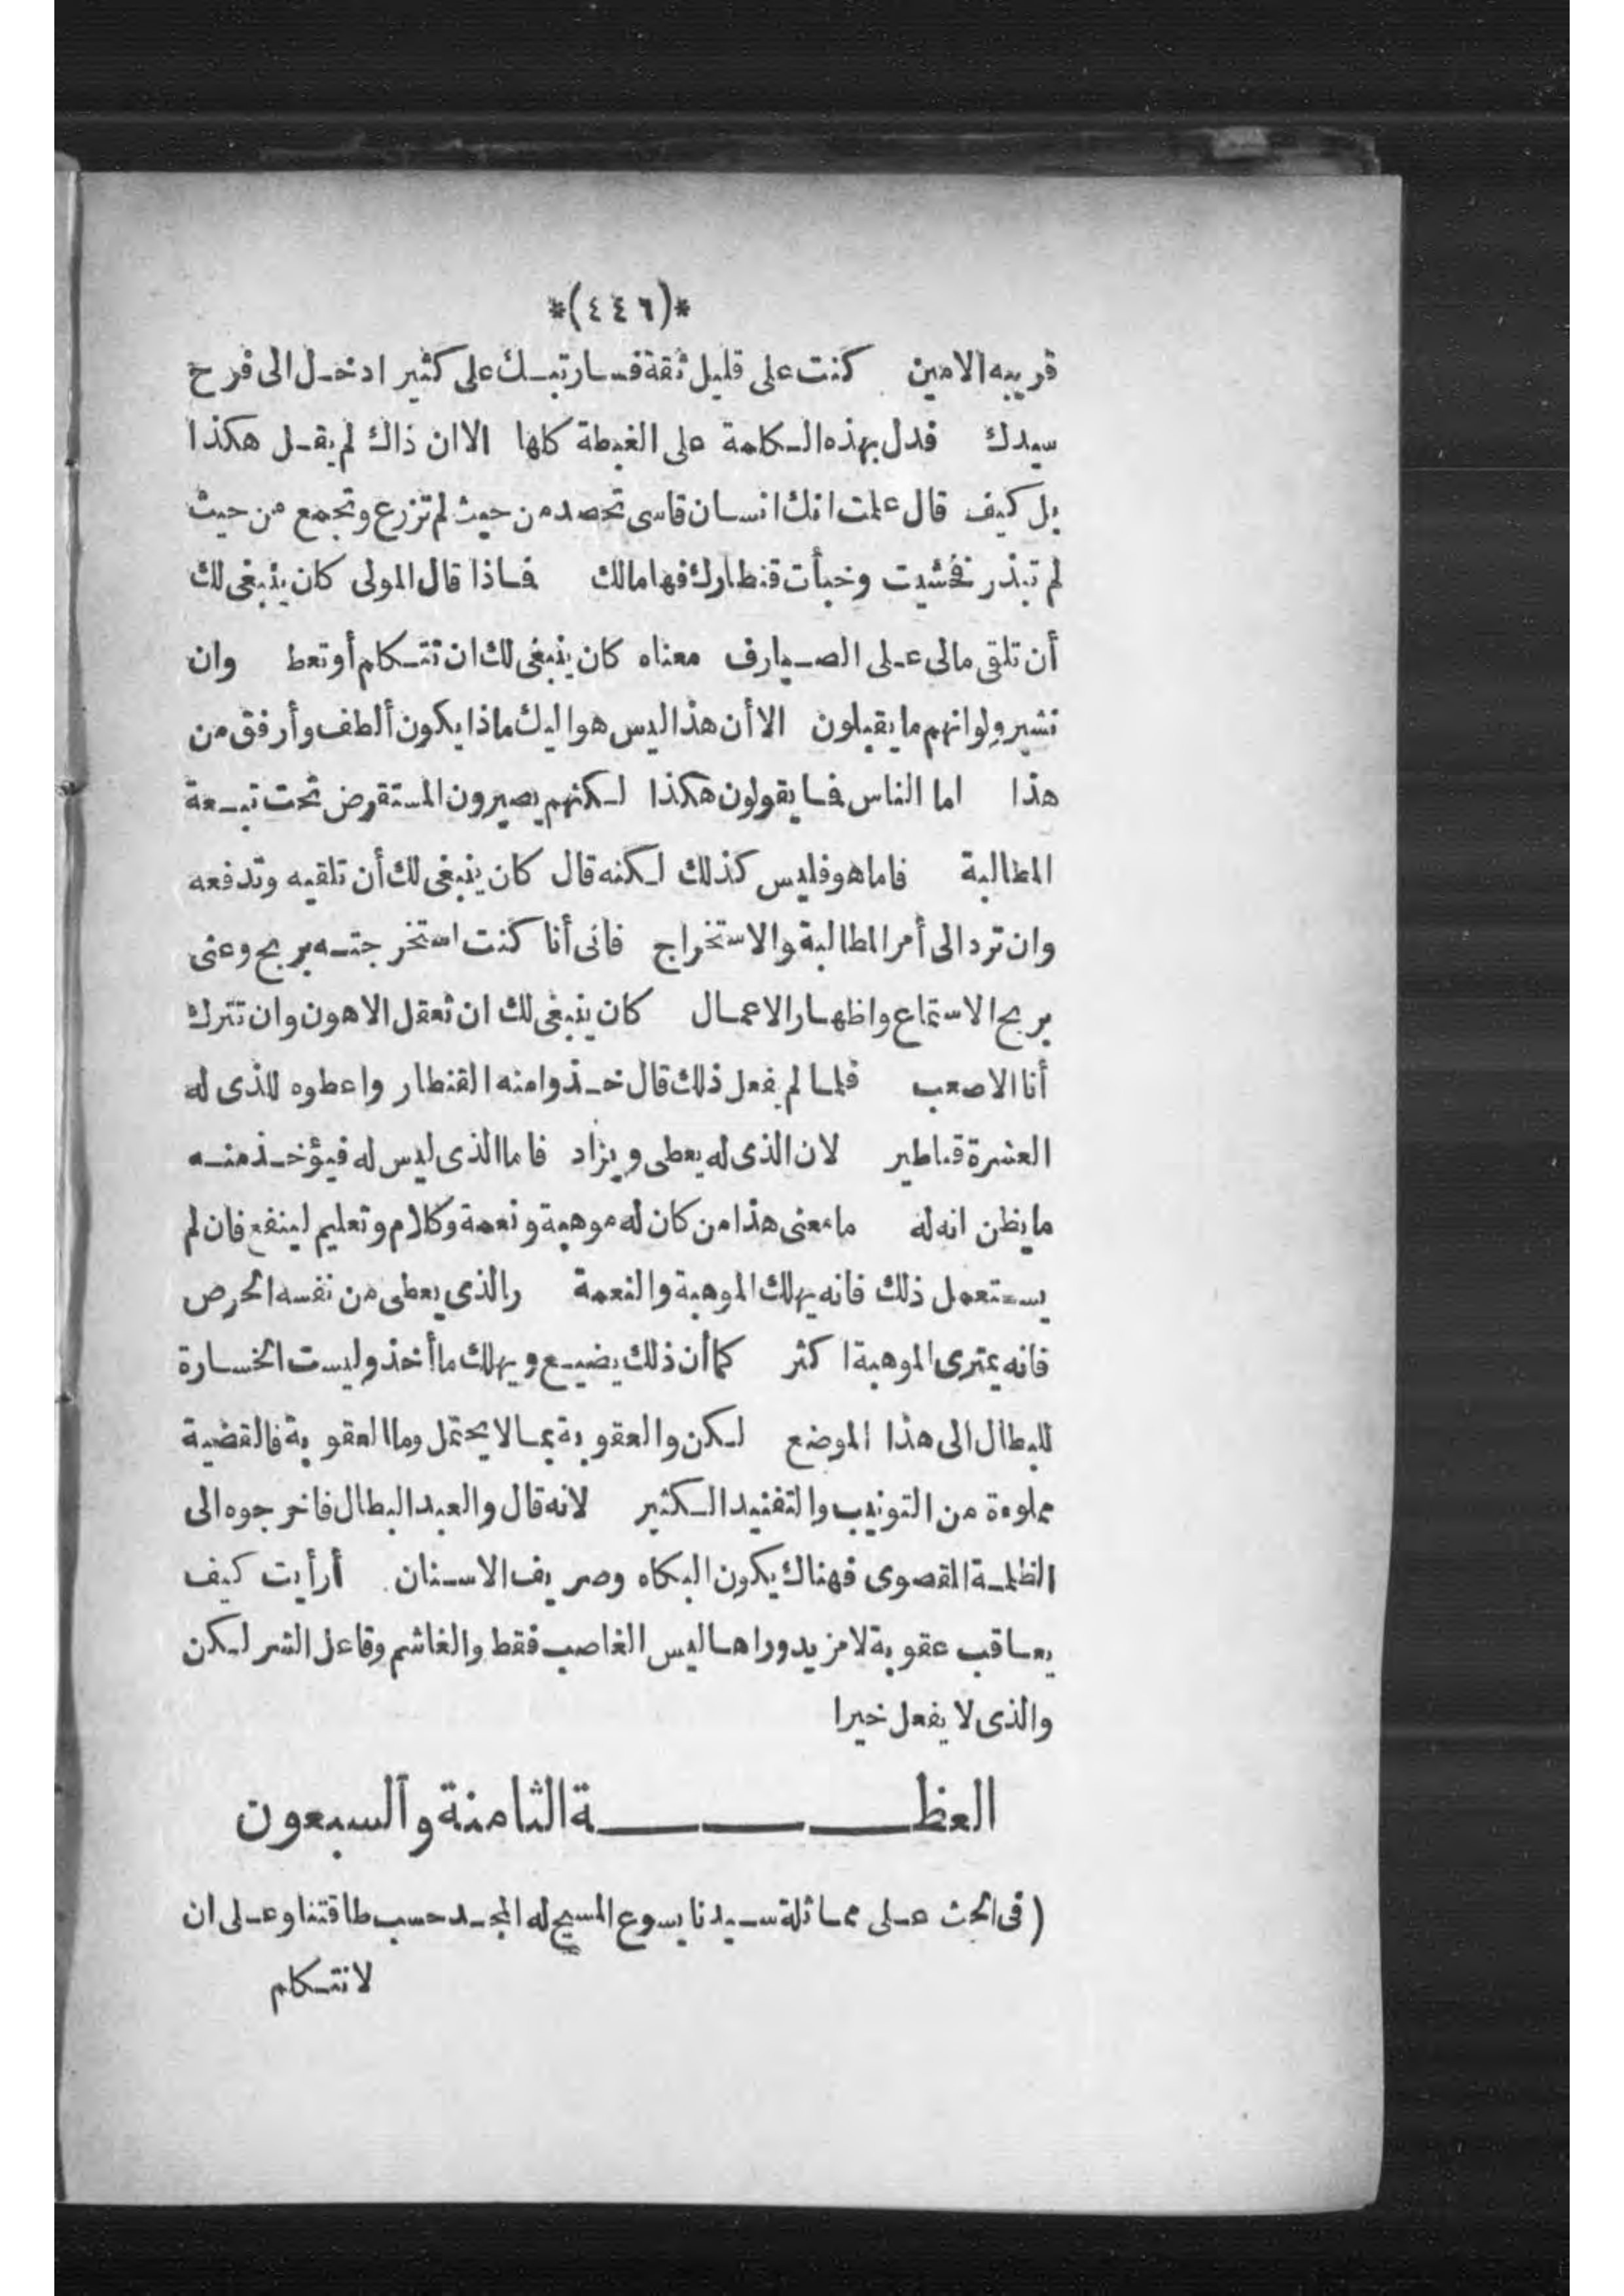 *(٤٤٦)*
قريبه الامين كنت على قليل ثقة فسارتبك على كثير ادخل الى فرح
سيدك فدل بهذه الكلمة على الغبطة كلها الا ان ذاك لم يقل هكذا
بل كيف قال علمت انك انسان قاسى تحصد من حيث لم تزرع وتجمع من حيث
لم تبذر فخشيت وخبأت قنطارك فها مالك فماذا قال المولى كان ينبغى لك
أن تلقى مالى على الصيارف معناه كان ينبغى لك ان تتكلم أو تعظ وان
تشير ولو انهم ما يقبلون الا أن هذا ليس هو اليك ماذا يكون ألطف وأرفق من
هذا اما الناس فما يقولون هكذا لكنهم يصيرون المستقرض تحت تبعة
المطالبة فاما هو فليس كذلك لكنه قال كان ينبغى لك أن تلقيه وتدفعه
وان ترد الى أمر المطالبة والاستخراج فانى أنا كنت استخرجته بربح وعنى
بربح الاستماع واظهار الاعمال كان ينبغى لك ان تعقل الاهون وان تترك
أنا الاصعب فلما لم يفعل ذلك قال خذوا منه القنطار واعطوه للذى له
العشرة قناطير لان الذى له يعطى ويزاد فاما الذى ليس له فيؤخذ منه
ما يظن انه له ما معنى هذا من كان له موهبة ونعمة وكلام وتعليم لينفع فان لم
يستعمل ذلك فانه يهلك الموهبة والنعمة والذى يعطى من نفسه الحرص
فانه يمترى الموهبة اكثر كما أن ذلك يضيع ويهلك ما أخذ وليست الخسارة
للبطال الى هذا الموضع لكن والعقوبة بما لا يحتمل وما العقوبة فالقضية
مملوءة من التونيب والتفنيد الكثير لانه قال والعبد البطال فاخرجوه الى
الظلمة القصوى فهناك يكون البكاه وصريف الاسنان أرأيت كيف
يعاقب عقوبة لا مزيد وراها ليس الغاصب فقط والغاشم وفاعل الشر لكن
والذى لا يفعل خيرا
العظة الثامنة والسبعون
(فى الحث على مماثلة سيدنا يسوع المسيح له المجد حسب طاقتنا وعلى ان
لا نتكلم